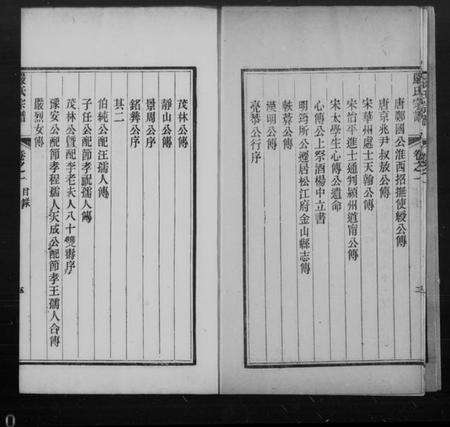 嚴氏宗譜
卷之一
唐鄭國公淮西招撫使綬公傳
唐京兆尹叔敖公傳
宋華州處士天翰公傳
宋治平進士通判潁州道南公傳
宋太學生心傳公遺命
心傳公上祭酒楊中立書
明筠所公遷居松江府金山縣志傳
軼蒼公傳
煙明公傳
亮恭公行序
三
茂林公傳
靜山公傳
景周公序
銘彝公序
其二
伯純公配汪孺人傳
子任公配節孝祝孺人傳
茂林公暨配李老夫人八十雙壽序
豫安公配節孝程孺人天成公配節孝王孺人合傳
嚴烈女傳
嚴氏宗譜
卷之一 目錄
五